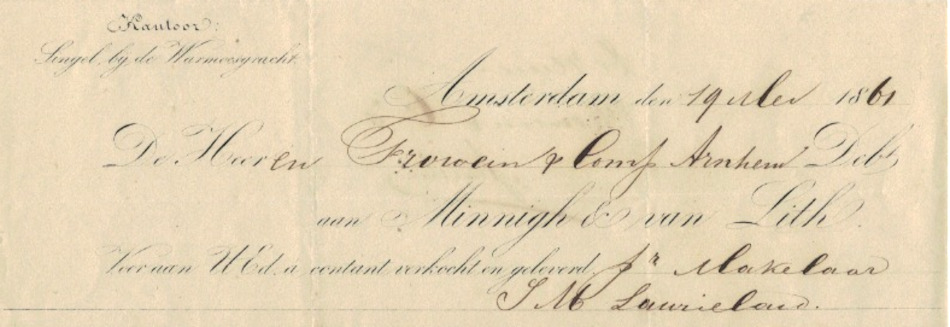 Kantoor:
Singel, bij de Warmoesgracht.
Amsterdam den 19 Mei 1861
De Heeren Frowein & Comp Arnhem Debt
aan Minnigh & van Lith.
Voor aan UEd. a contant verkocht en geleverd pr Makelaar
J M